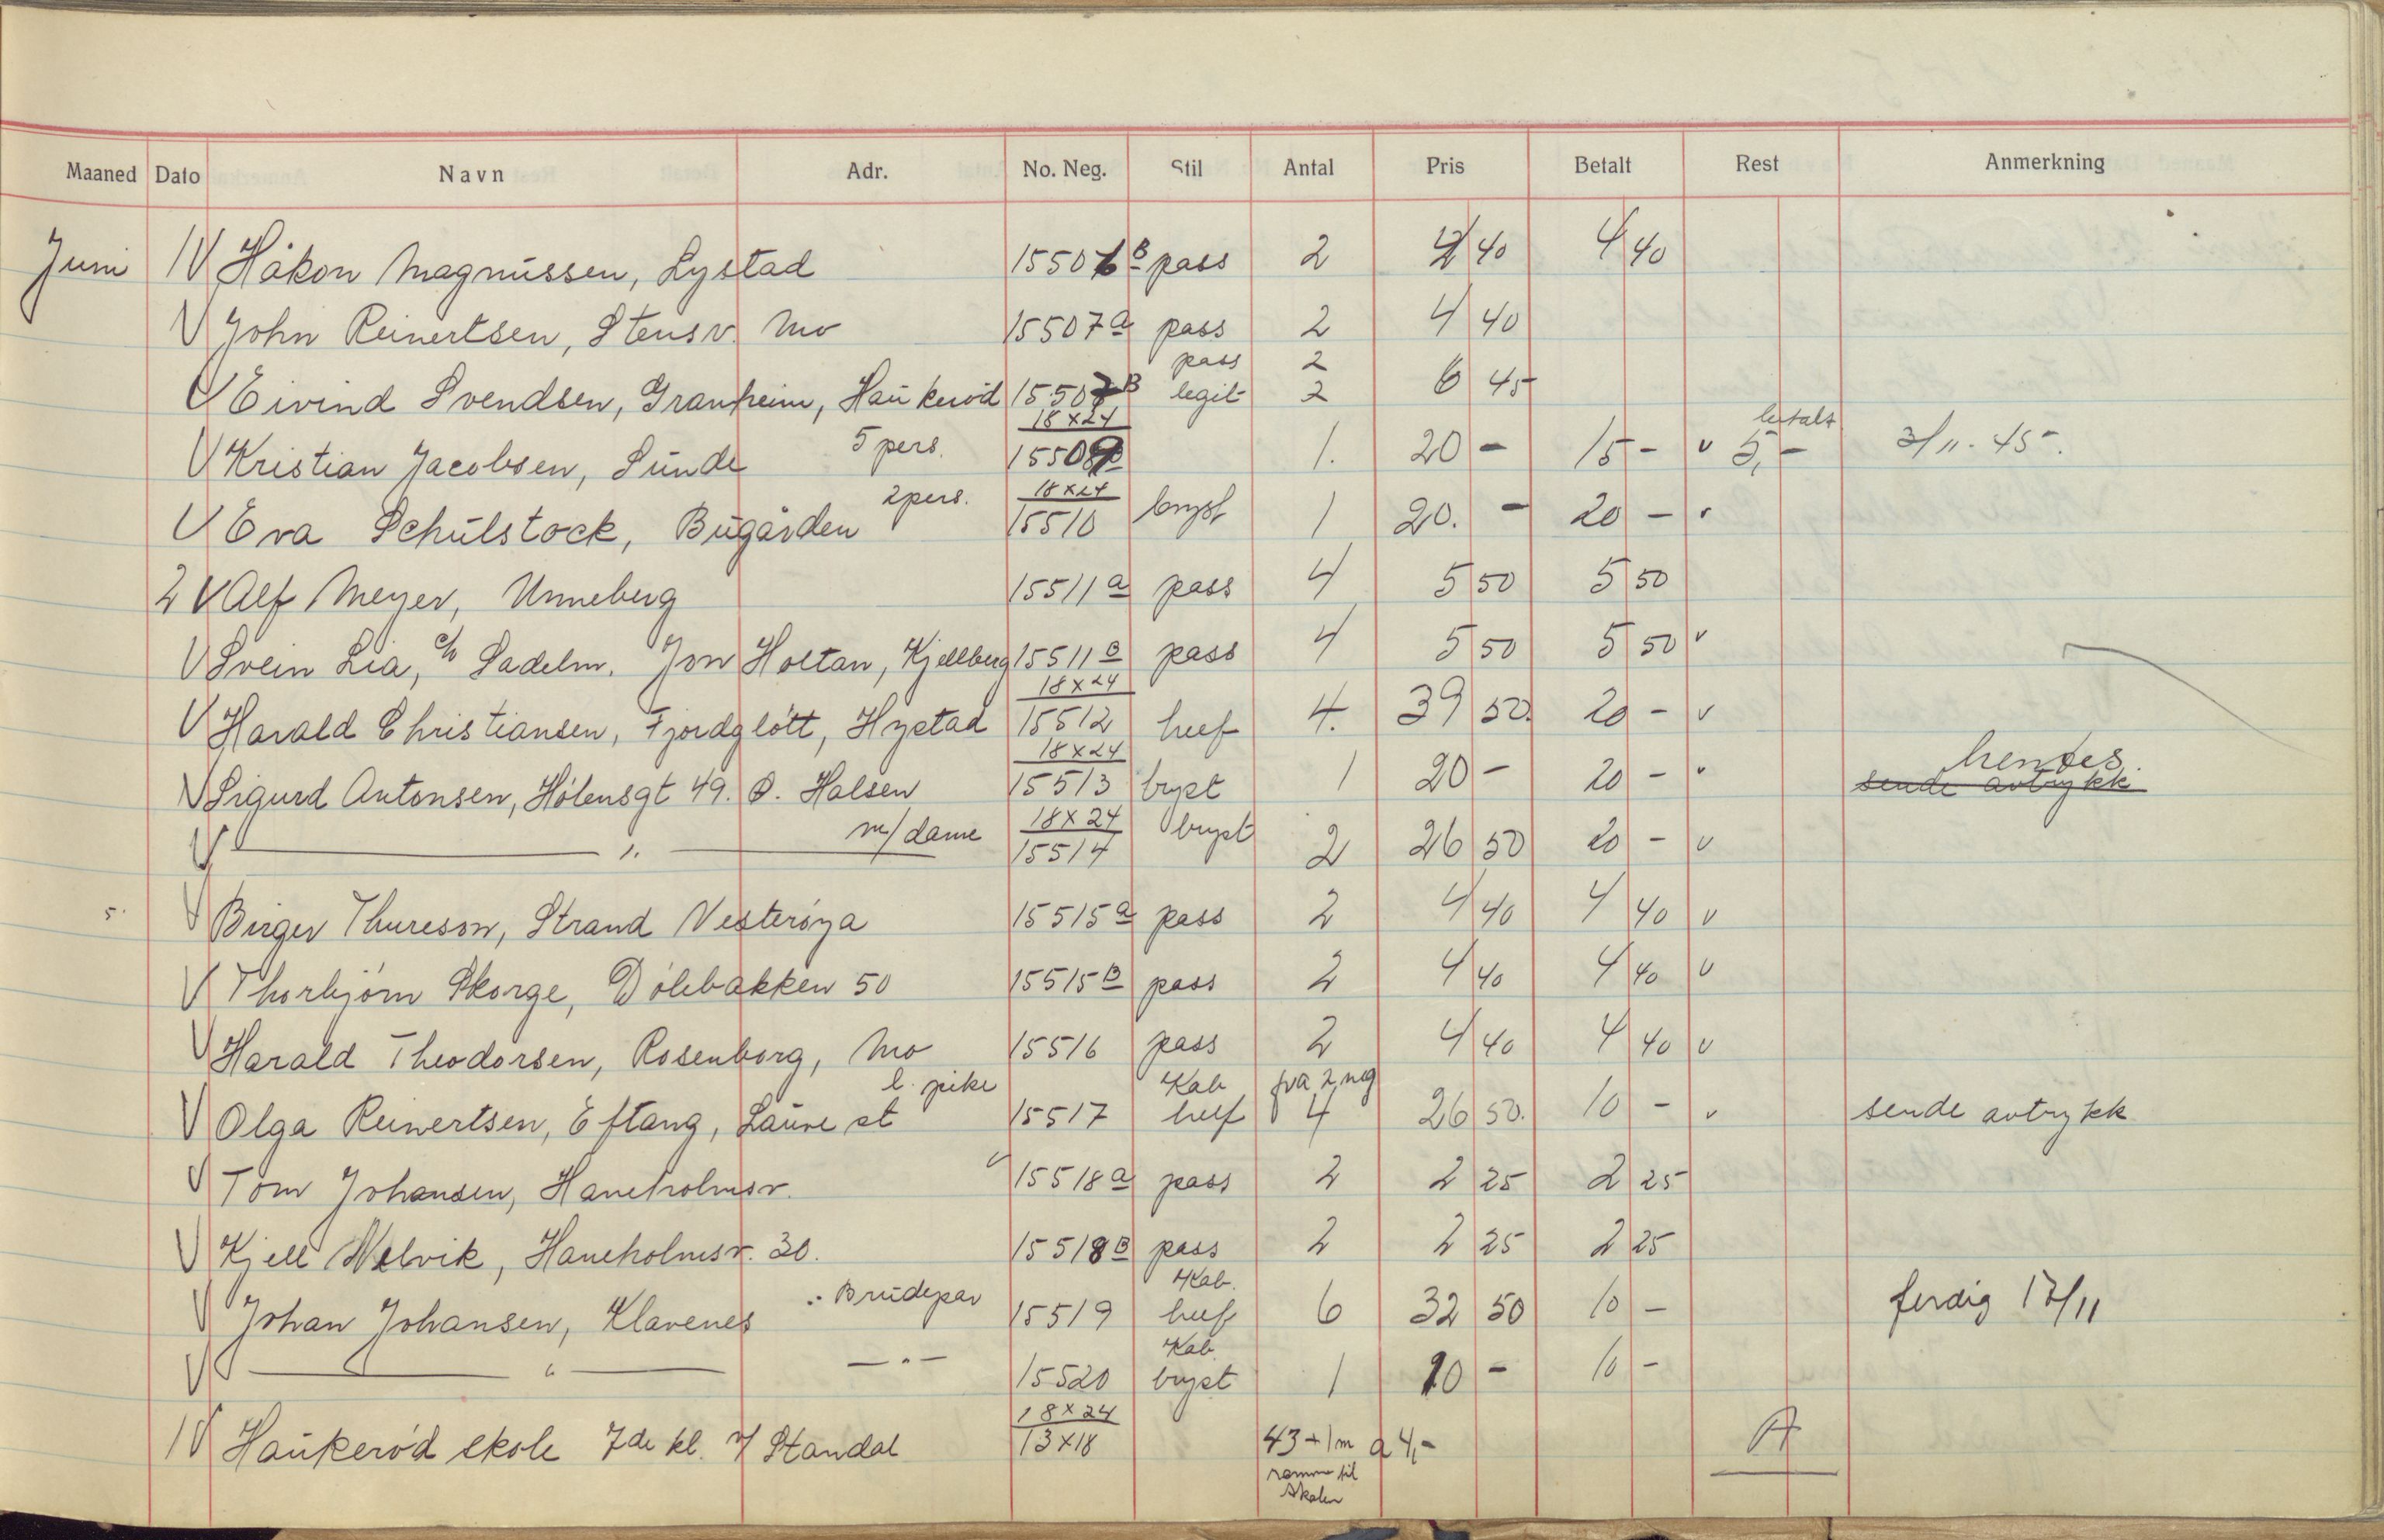 Maaned Dato Navn Adr. No. Neg. Stil Antal Pris Betalt Rest Anmerkning
Juni 1 V Håkon Magnussen, Lystad 15506 B pass 2 4 40 4 40
V John Reinertsen, Stensv. Mo 15507 a pass 2 4 40
pass 2
V Eivind Svendsen, Granheim, Haukerød 15507 B legit 2 6 45
18x24 betalt
V Kristian Jacobsen, Sunde 5 pers. 15509 1. 20 - 15 - v 5,- 3/11-45.
2 pers. 18x24
V Eva Schulstock, Bugården 15510 bryst 1 20. - 20 -
2 V Alf Meyer, Unneberg 15511 a pass 4 5 50 5 50
V Svein Lia, c/o Sadelm. Jon Holtan, Kjellberg 15511 B pass 4 5 50 5 50 v
18x24
V Harald Christiansen, Fjordgløtt, Hystad 15512 heef 4. 39 50. 20 - v
18x24 hentes
V Sigurd Antonsen, Hølensgt 49. Ø. Halsen 15513 bryst 1 20 - 20 - v sende avtrykk
m/dame 18x24 bryst
V — " — 15514 2 26 50 20 - v
5. V Birger Thureson, Strand Vesterøya 15515 a pass 2 4 40 4 40 v
V Thorbjørn Skorge, Dølebakken 50 15515 B pass 2 4 40 4 40 v
V Harald Theodorsen, Rosenborg, Mo 15516 pass 2 4 40 4 40 v
l. pike Kab fra 2 neg
V Olga Reinertsen, Eftang, Lauve st 15517 heef 4 26 50. 10 - v sende avtrykk
V Tom Johansen, Haneholmsv. 15518 a pass 2 2 25 2 25
V Kjell Melvik, Haneholmsv. 30. 15518 B pass 2 2 25 2 25
Brudepar Kab.
V Johan Johansen, Klavenes 15519 heef 6 32 50 10 - ferdig 17/11
Kab.
V — " — — " — 15520 bryst 1 10 - 10 -
18x24
1 V Haukerød skole 7de kl. v/ Standal 13x18 43 + 1 m a 4,- A
ramme til
skolen